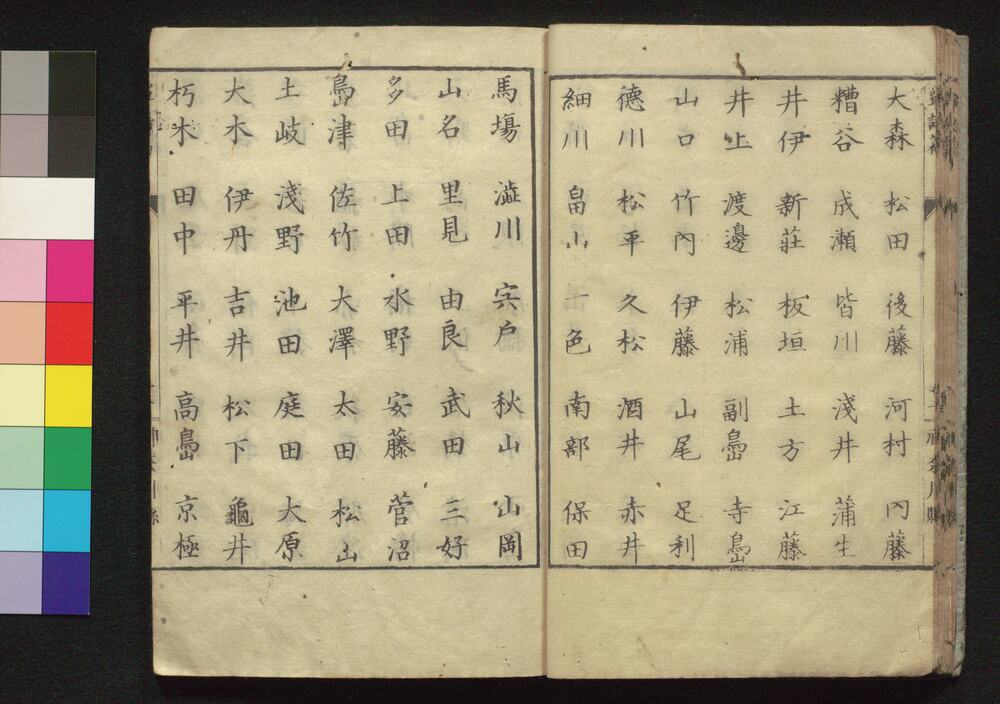 大森 松田 後藤 河村 內藤
糟谷 成瀬 皆川 淺井 蒲生
井伊 新莊 板垣 土方 江藤
井上 渡邊 松浦 副島 寺島
山口 竹內 伊藤 山尾 足利
德川 松平 久松 酒井 赤井
細川 畠山 一色 南部 保田
馬塲 澁川 宍戸 秋山 山岡
山名 里見 由良 武田 三好
多田 上田 水野 安藤 菅沼
島津 佐竹 大澤 太田 松山
土岐 淺野 池田 庭田 大原
大木 伊丹 吉井 松下 龜井
朽木 田中 平井 高島 京極